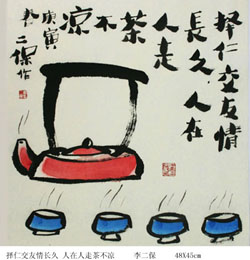 择仁交友情
長久，人在
人走
茶不
凉
庚寅
春二保作
择仁交友情长久 人在人走茶不凉 李二保 48X45cm